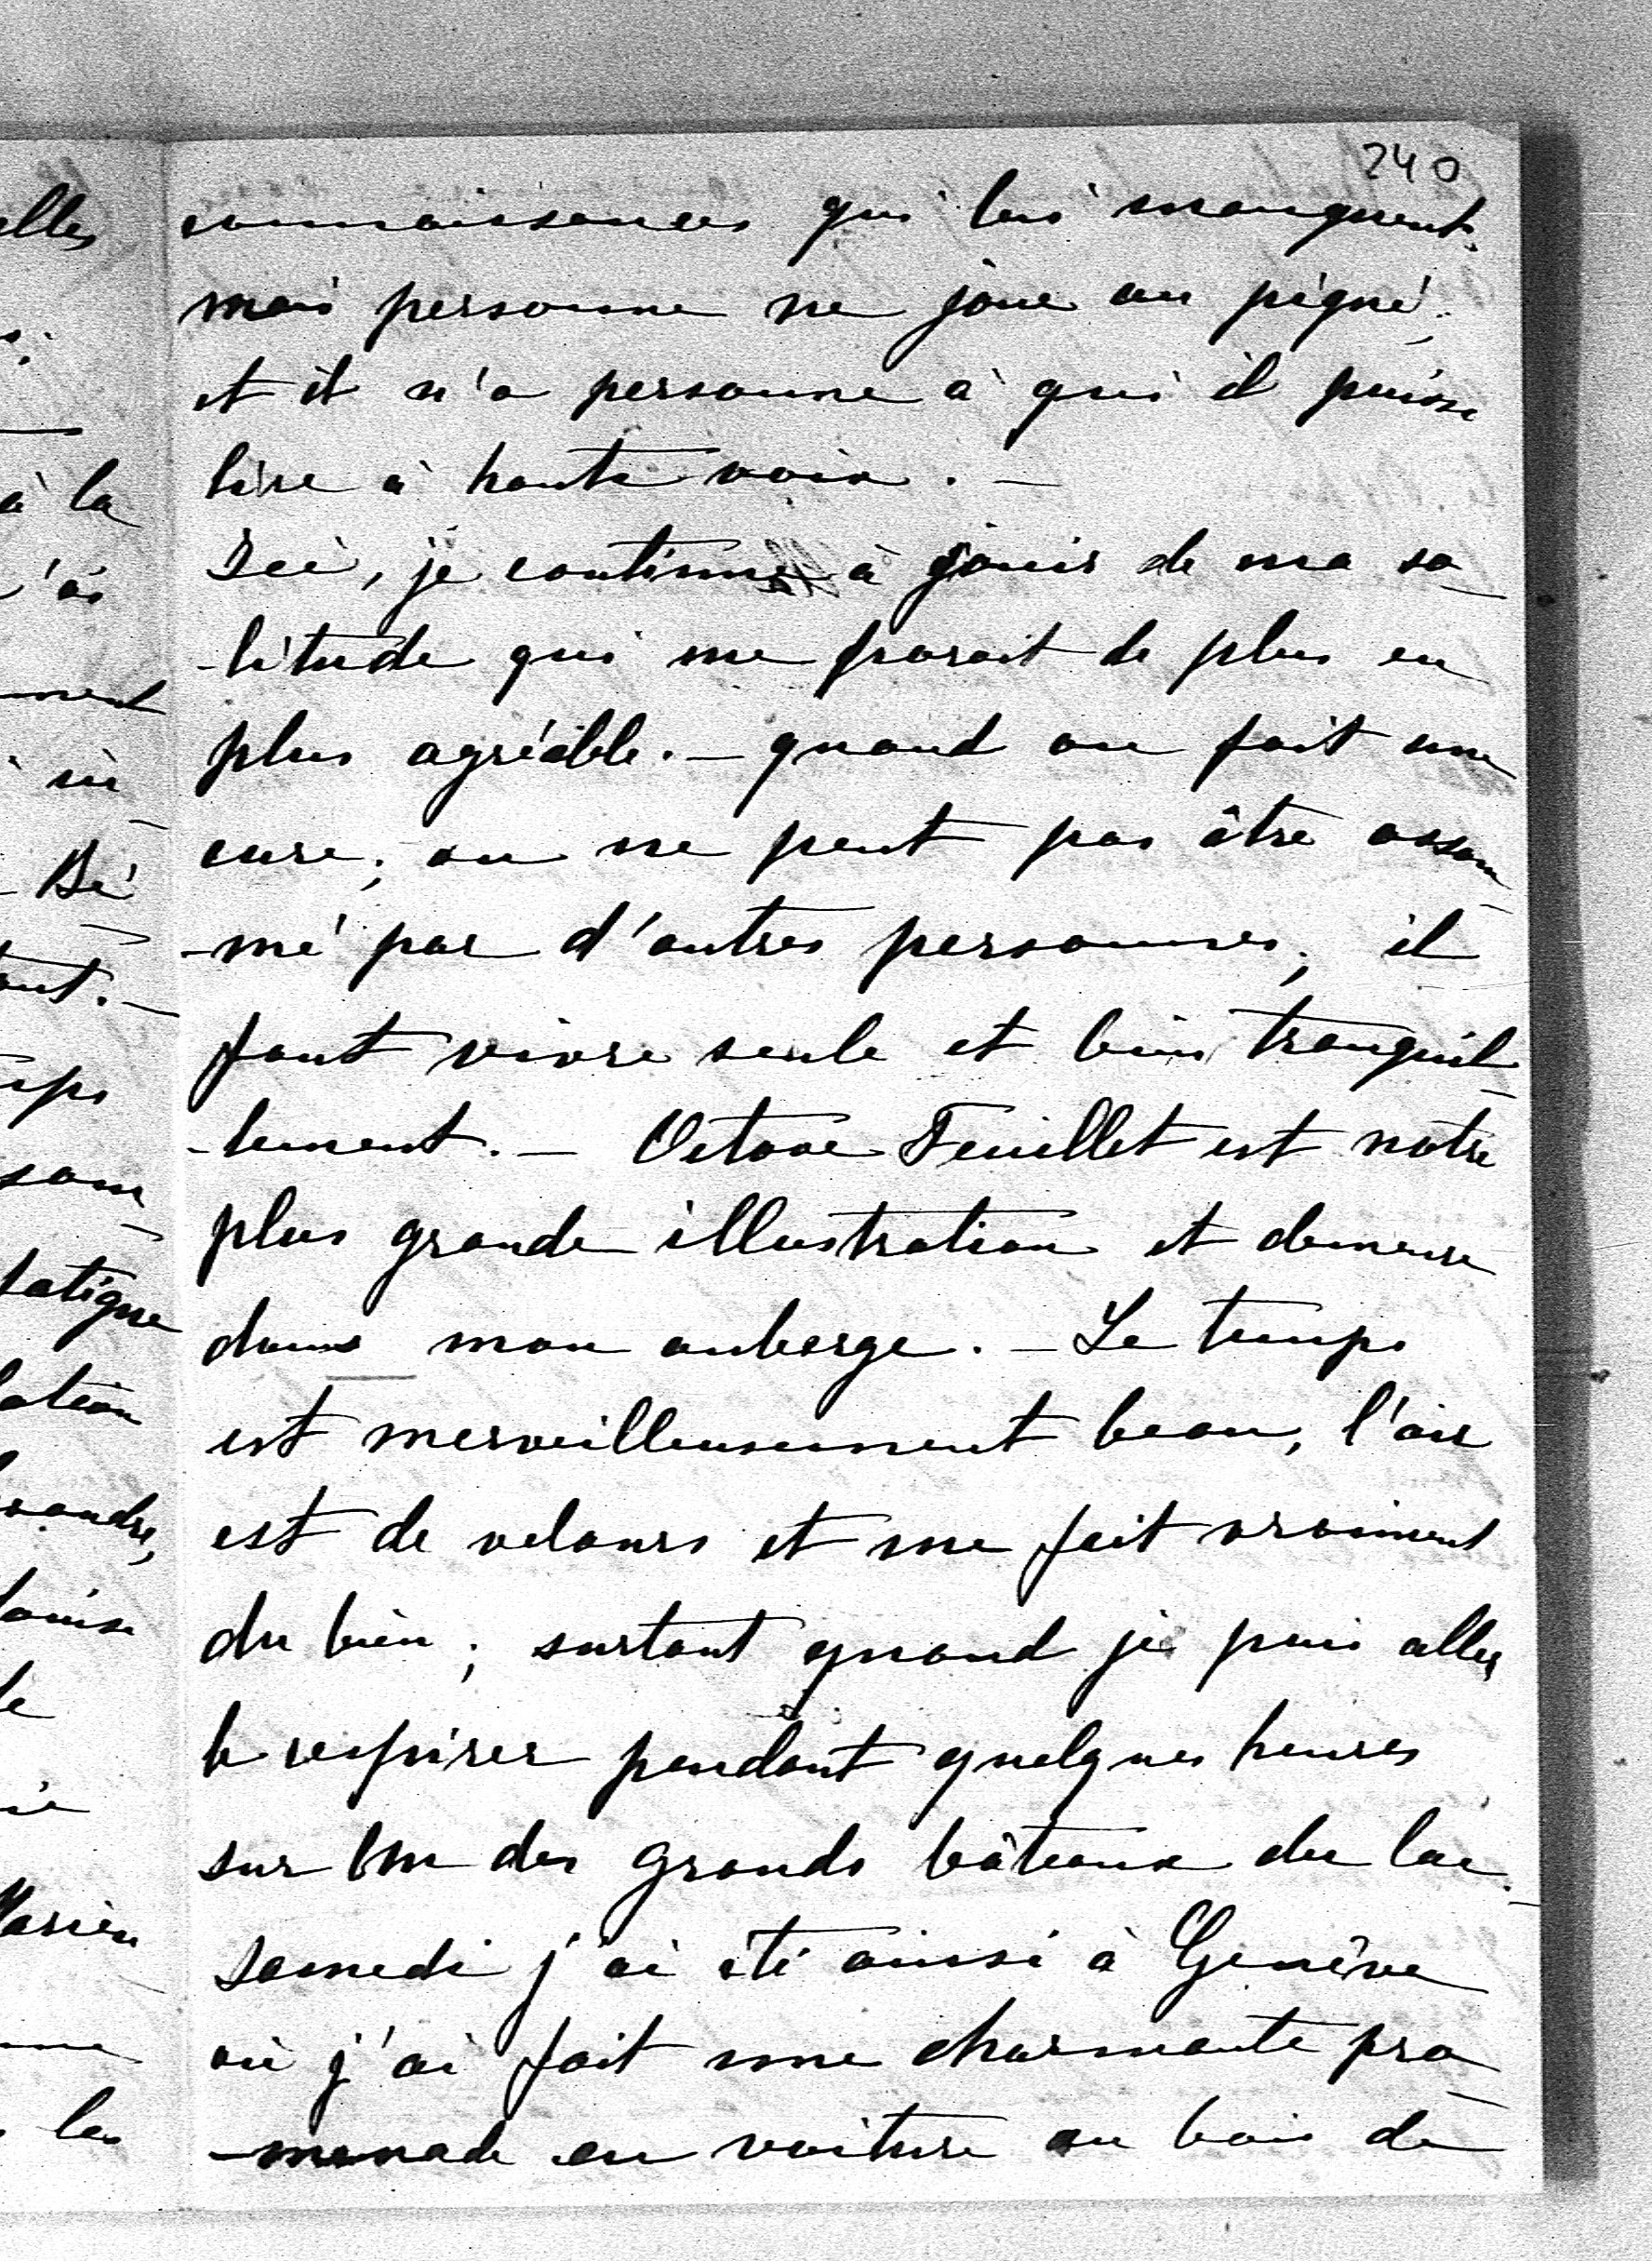 240
connaissances qui lui manquent.
mais personne ne joue au piqué,
et il n'a personne à qui il puisse
lire à haute voix. —
Ici, je continue à jouir de ma so-
-litude qui me parait de plus en
plus agréable. — quand on fait une
cure, on ne peut pas être assom-
-mé par d'autres personnes, il
faut vivre seule et bien tranquil-
-lement. — Octave Feuillet est notre
plus grande illustration et demeure
dans mon auberge. — Le temps
est merveilleusement beau, l'air
est de velours et me fait vraiment
du bien; surtout quand je puis aller
le respirer pendant quelques heures
sur un des grands bâteaux du lac. —
Samedi j'ai été aussi à Genève
où j'ai fait une charmante pro-
-menade en voiture au bois de